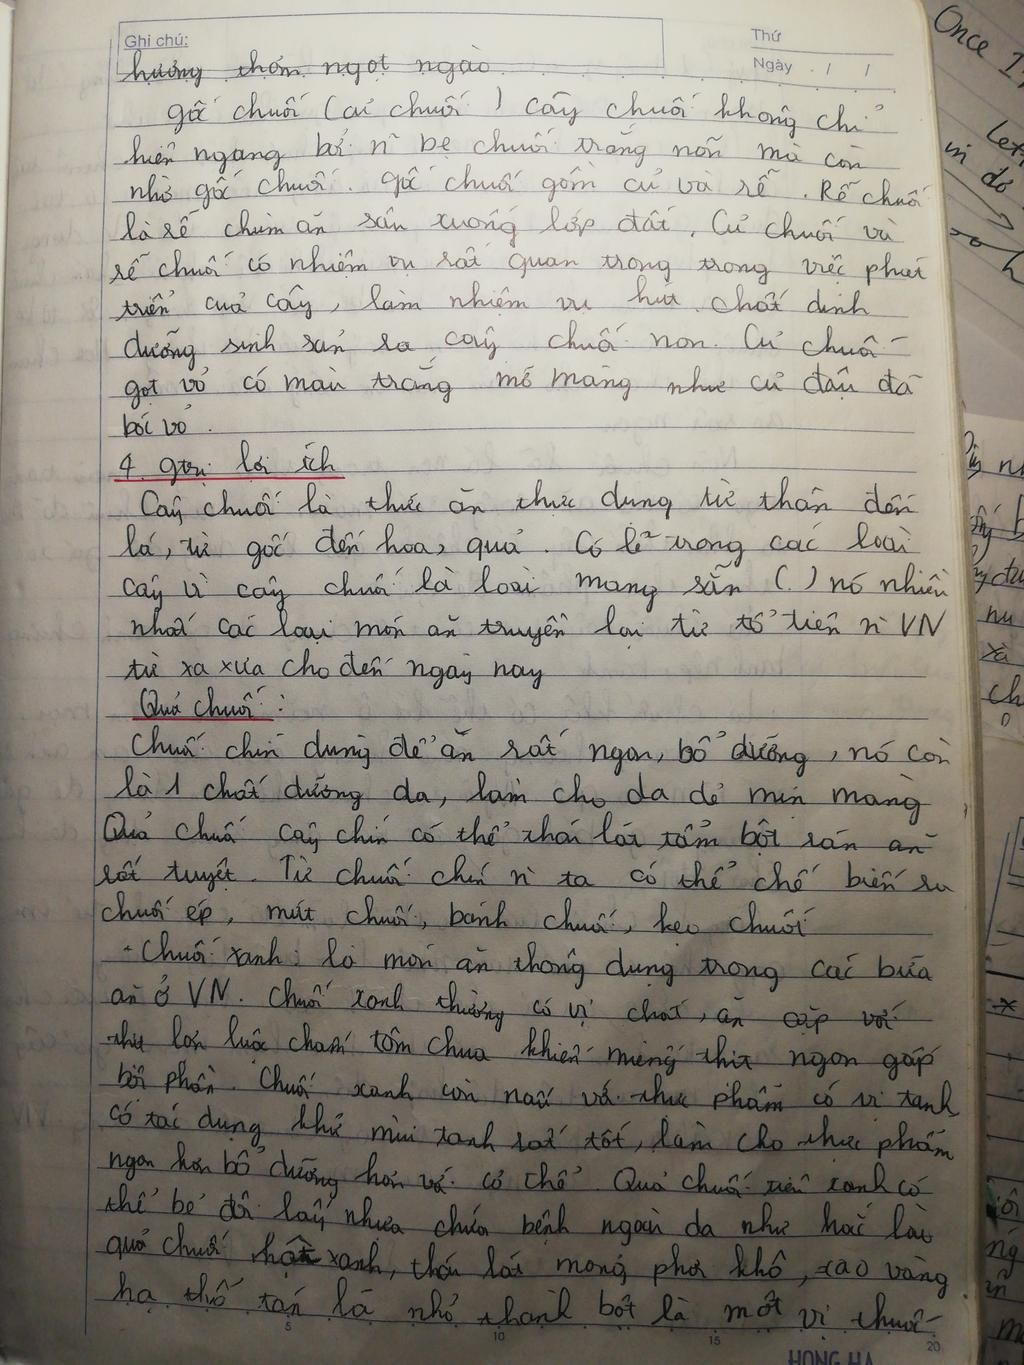 Ghi chú:
Thứ
Ngày / /
hương thơm ngọt ngào
gốc chuối (củ chuối) cây chuối không chỉ
hiên ngang bởi n~ bẹ chuối trắng nõn mà còn
nhờ gốc chuối. gốc chuối gồm củ và rễ. Rễ chuối
là rễ chùm ăn sâu xuống lớp đất. Củ chuối và
rễ chuối có nhiệm vụ rất quan trọng trong việc phát
triển của cây, làm nhiệm vụ hút chất dinh
dưỡng sinh sản ra cây chuối non. Củ chuối
gọt vỏ có màu trắng mỡ màng như củ đậu đã
bóc vỏ.
4 gtrị lợi ích
Cây chuối là thức ăn thực dụng từ thân đến
lá, từ gốc đến hoa, quả. Có lẽ trong các loài
cây vì cây chuối là loài mang sẵn (.) nó nhiều
nhất các loại món ăn truyền lại từ tổ tiên n` VN
từ xa xưa cho đến ngày nay
Quả chuối:
Chuối chín dùng để ăn rất ngon, bổ dưỡng, nó còn
là 1 chất dưỡng da, làm cho da dẻ mịn màng
Quả chuối cây chín có thể thái lát tẩm bột rán ăn
rất tuyệt. Từ chuối chín n` ta có thể chế biến ra
chuối ép, mứt chuối, bánh chuối, kẹo chuối
+ Chuối xanh: là món ăn thông dụng trong các bữa
ăn ở VN. Chuối xanh thường có vị chát, ăn cặp với
thịt lợn luộc chấm tôm chua khiến miếng thịt ngon gấp
bội phần. Chuối xanh còn nấu với thực phẩm có vị tanh
có tác dụng khử mùi tanh rất tốt, làm cho thực phẩm
ngon hơn bổ dưỡng hơn với cơ thể. Quả chuối tiêu xanh có
thể bẻ đôi lấy nhựa chữa bệnh ngoài da như hắc lào
quả chuối hột xanh, thái lát mỏng phơi khô, sao vàng
hạ thổ tán là nhỏ thành bột là một vị thuốc
5 10 15 20
HONG HA
Once